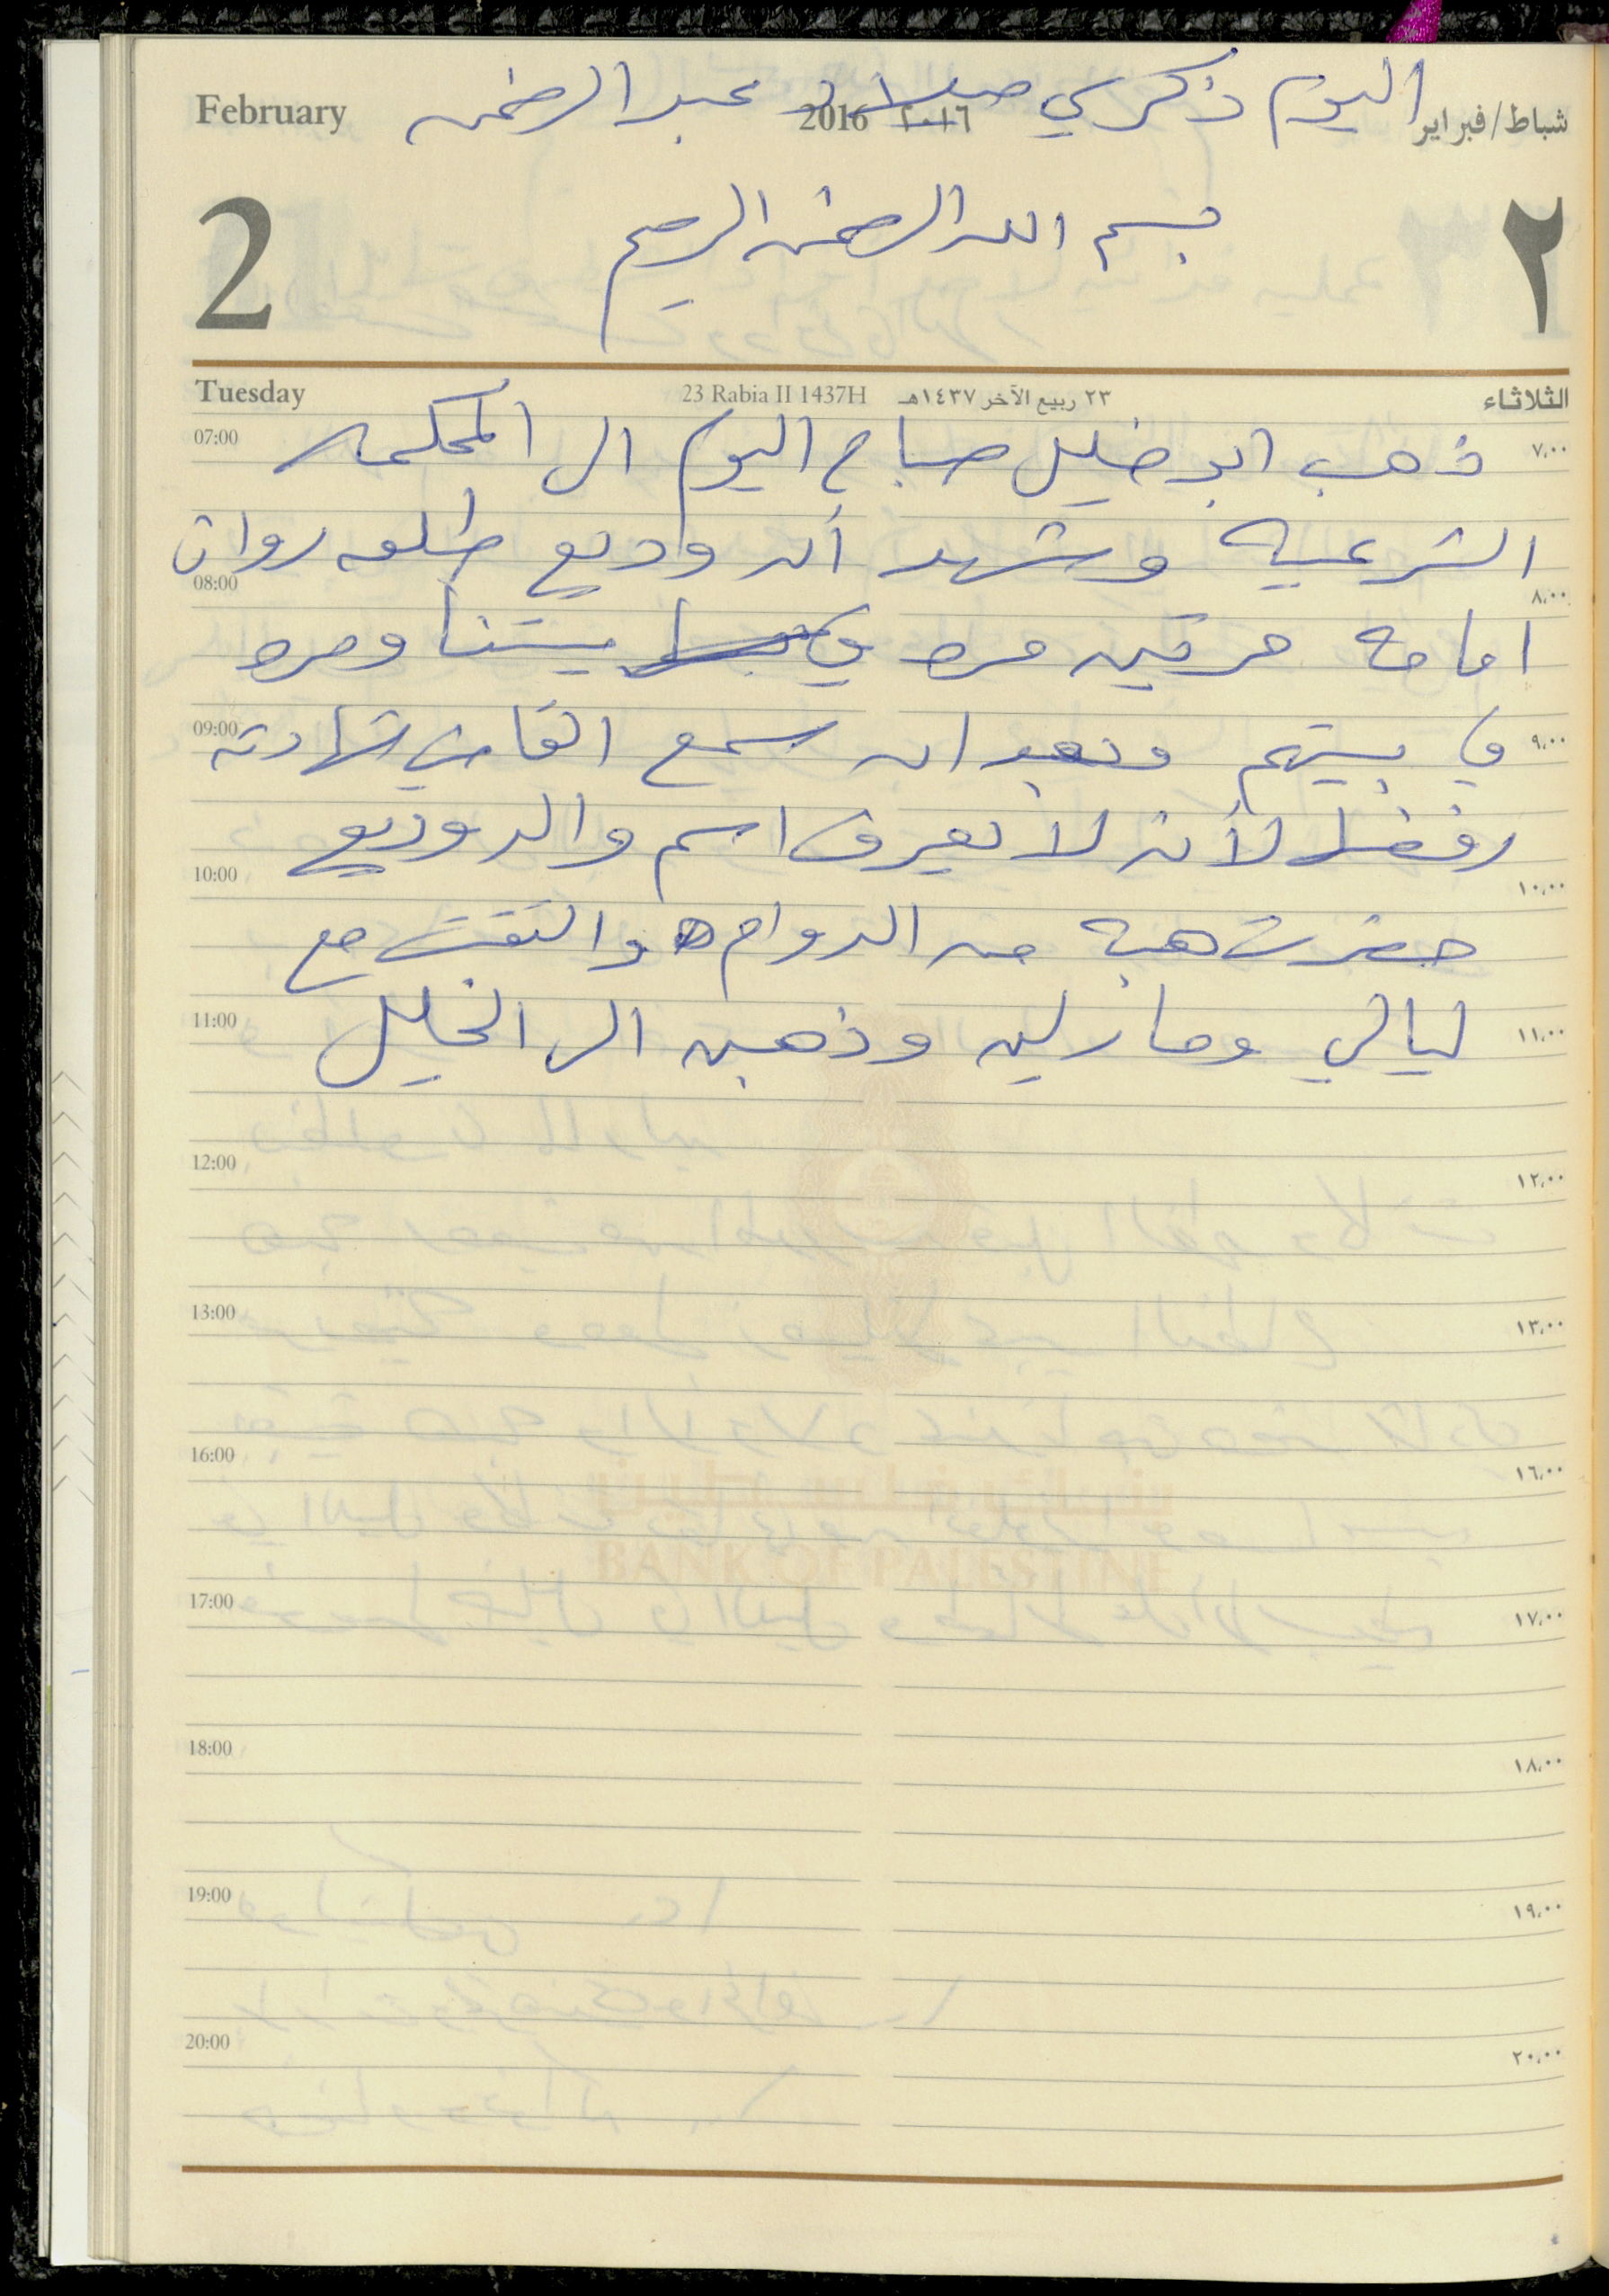 اليوم ذكرى ميلاد عبد الرحمن
February 2016 ٢٠١٦ شباط/فبراير
2 ٢
بسم الله الرحمن الرحيم
Tuesday 23 Rabia II 1437H ٢٣ ربيع الآخر ١٤٣٧هـ الثلاثاء
07:00 ٧,٠٠
ذهب ابو خليل صباح اليوم الى المحكمه
الشرعيه وشهد أن وديع طلق روان
08:00 ٨,٠٠
امامه مرتين مره في بيتنا ومره
09:00 ٩,٠٠
في بيتهم وبعد ان سمع القاضي شهادته
رفضها لأنه لا يعرف اسم والد وديع
10:00 ١٠,٠٠
حضرت هبه من الدوام والتقت مع
11:00 ١١,٠٠
ليالي ومارلين وذهبن الى الخليل
12:00 ١٢,٠٠
13:00 ١٣,٠٠
16:00 ١٦,٠٠
بنك فلسطين
BANK OF PALESTINE
17:00 ١٧,٠٠
18:00 ١٨,٠٠
19:00 ١٩,٠٠
20:00 ٢٠,٠٠